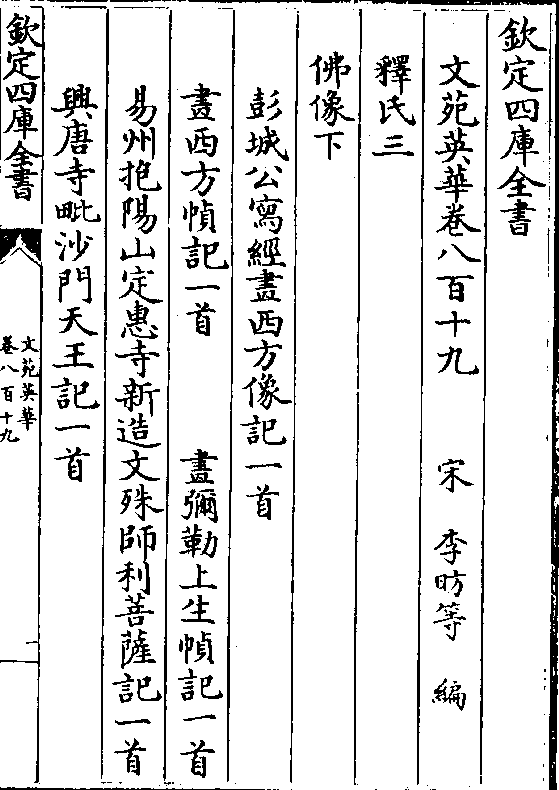 欽定四庫全書
文苑英華卷八百十九　宋　李昉等　編
釋氏三
佛像下
彭城公寫經畫西方像記一首
畫西方幀記一首　畫彌勒上生幀記一首
易州抱陽山定惠寺新造文殊師利菩薩記一首
興唐寺毗沙門天王記一首
欽定四庫全書
文苑英華
卷八百十九
一